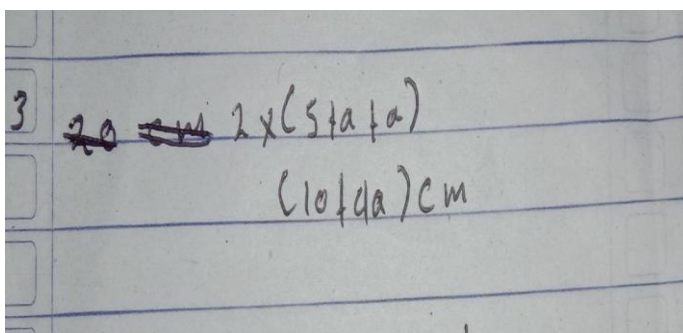 3 20 cm 2 x (5 + a + a)
(10 + 4a) cm